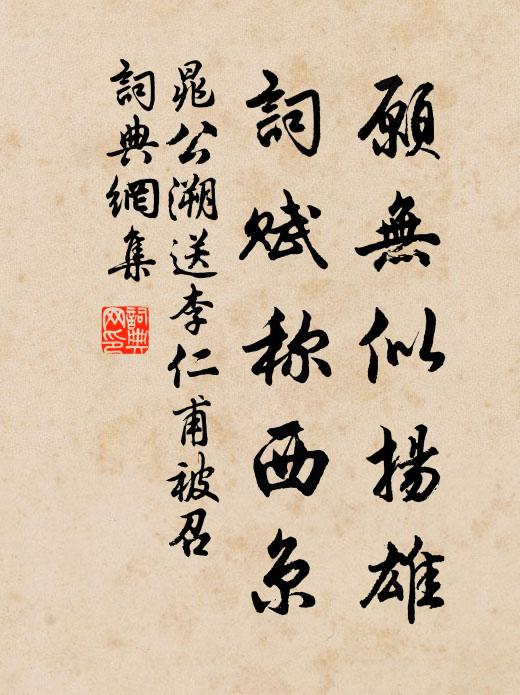 願無似揚雄
詞赋称西京
晁公溯送李仁甫被召
詞典網集
詞典网印